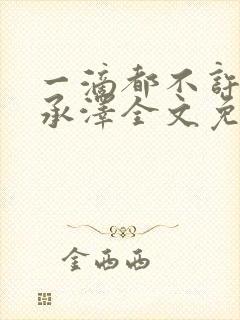 一滴都不許
承澤全文免
金西西